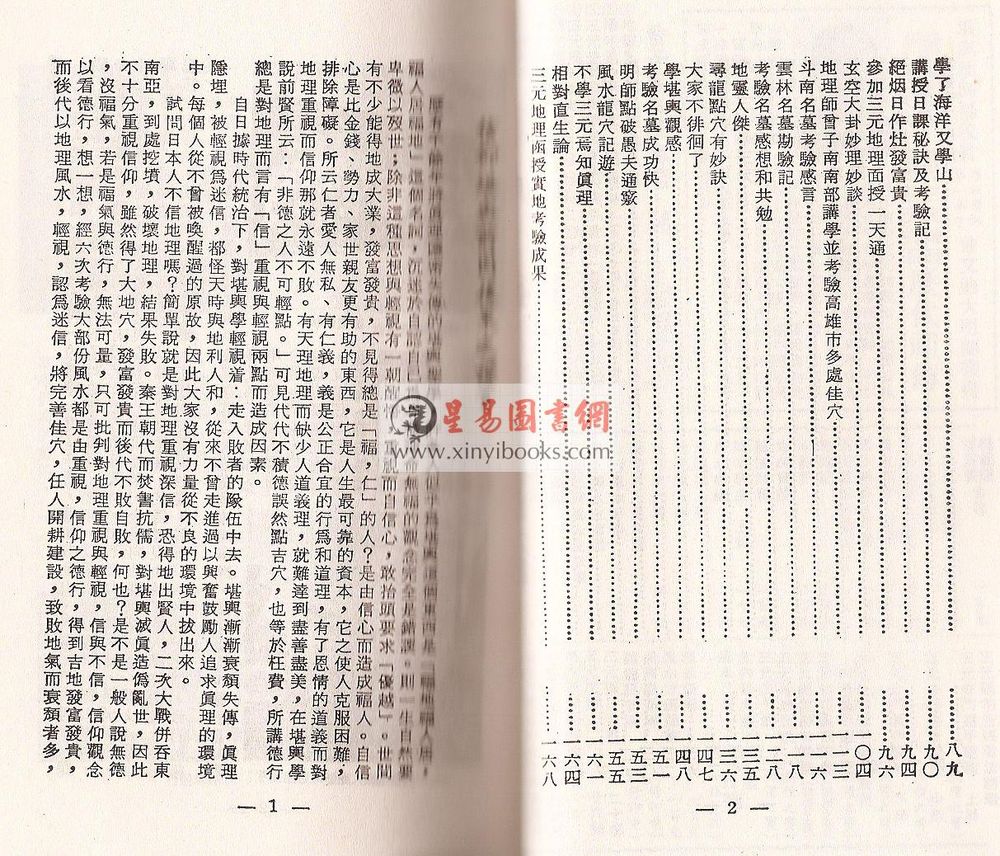 學了海洋又學山……八九
講授日課秘訣及考驗記……九〇
絕烟日作灶發富貴……九四
參加三元地理面授一天通……九六
玄空大卦妙理妙談……一〇四
地理師曾子南南部講學並考驗高雄市多處佳穴……一一三
斗南名墓考驗感言……一一六
雲林名墓勘驗記……一一八
考驗名墓感想和共勉……一二八
地靈人傑……一三三
尋龍點穴有妙訣……一三六
大家不徘徊了……一四七
學堪輿觀感……一四八
考驗名墓成功快……一五一
明師點破愚夫通竅……一五三
風水龍穴記遊……一五五
不學三元焉知眞理……一六一
相對直生論……一六四
三元地理函授實地考驗成果……一六八
— 2 —
福人居福地」這個名詞,沉迷於自認自己命無福的觀念完全是錯誤。則一生自然要
卑微以歿世;除非這種思想與輕視有一朝醒悟,重視而自信心,敢抬頭要求「優越」。世間
有不少能得地成大業,發富發貴,不見得總是「福,仁」的人?是由信心而造成福人。自信
心是比金錢、勢力、家世親友更有助的東西,它是人生最可靠的資本,它之使人克服困難,
排除障礙。所云仁者愛人無私、有仁義,義是公正合宜的行爲和道理,有了恩情的道義而對
地理重視而信仰那就永遠不敗。有天理地理而缺少人道義理,就難達到盡善盡美,在堪輿學
說前賢所云:「非德之人不可輕點。」可見代代不積德誤然點吉穴,也等於枉費,所講德行
總是對地理而言有「信」重視與輕視兩點而造成因素。
自日據時代統治下,對堪輿學輕視着:走入敗者的隊伍中去。堪輿漸漸衰頹失傳,眞理
隱埋,被輕視爲迷信,都怪天時與地利人和,從來不曾走進過以興奮鼓勵人追求眞理的環境
中。每個人從不曾被喚醒過的原故,因此大家沒有力量從不良的環境中拔出來。
試問日本人不信地理嗎?簡單說就是對地理重視深信,恐得地出賢人,二次大戰併吞東
南亞,到處挖墳,破壞地理,結果失敗。秦王朝代而焚書抗儒,對堪輿滅眞造僞亂世,因此
不十分重視信仰,雖然得了大地穴,發富發貴而後代不敗自敗,何也?是不是一般人說無德
,沒福氣,若是福氣與德行,無法可量,只可批判對地理重視與輕視,信與不信,信仰觀念
以看德行,想一想,經六次考驗大部份風水都是由重視,信仰之德行,得到吉地發富發貴,
而後代以地理風水,輕視,認爲迷信,將完善佳穴,任人開耕建設,致敗地氣而衰頹者多,
— 1 —
星易圖書網
www.xinyibooks.com